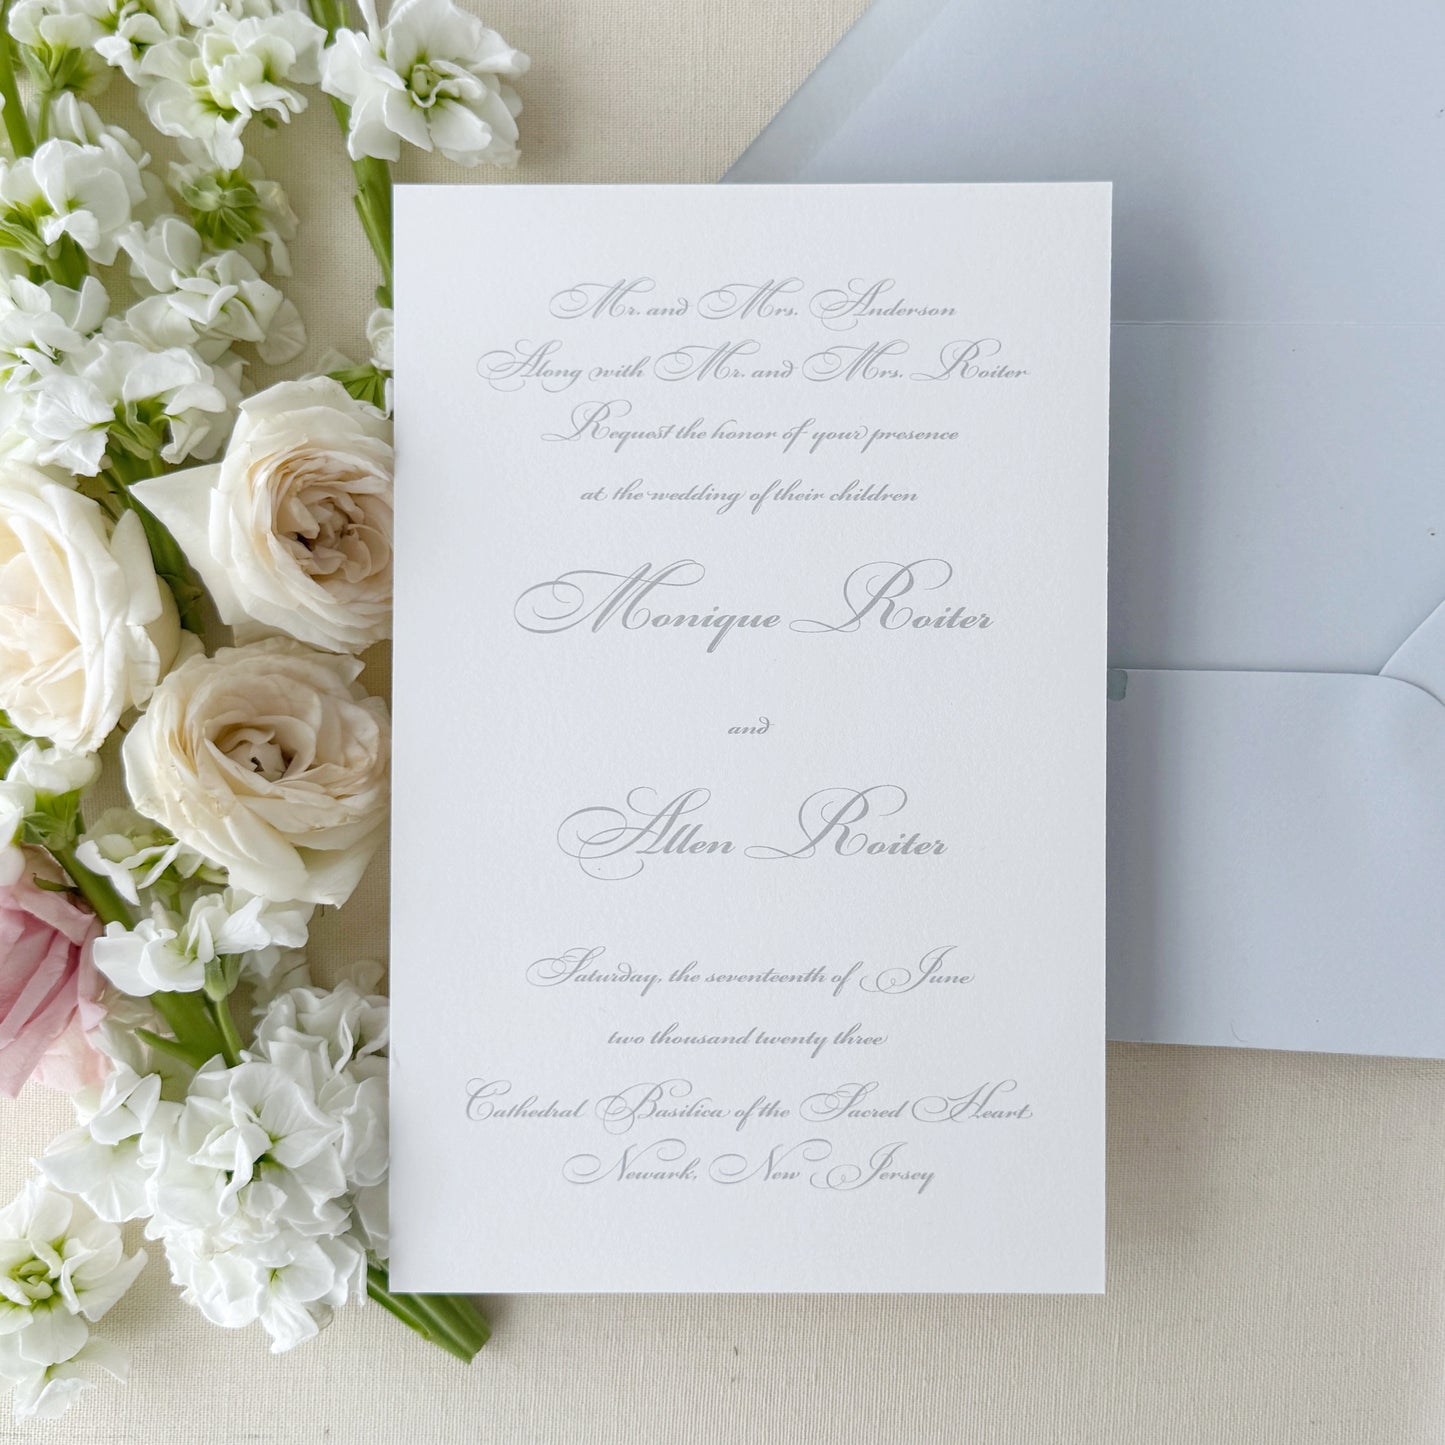 Mr. and Mrs. Anderson
Along with Mr. and Mrs. Roiter
Request the honor of your presence
at the wedding of their children
Monique Roiter
and
Allen Roiter
Saturday, the seventeenth of June
two thousand twenty three
Cathedral Basilica of the Sacred Heart
Newark, New Jersey